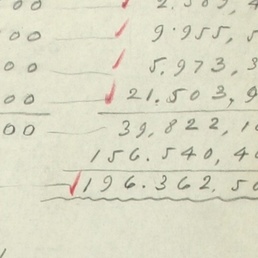 00 2.569, 4
00 9.955, 5
00 5.973, 3
00 21.503, 9
00 39,822, 10
156.540, 40
196.362, 50